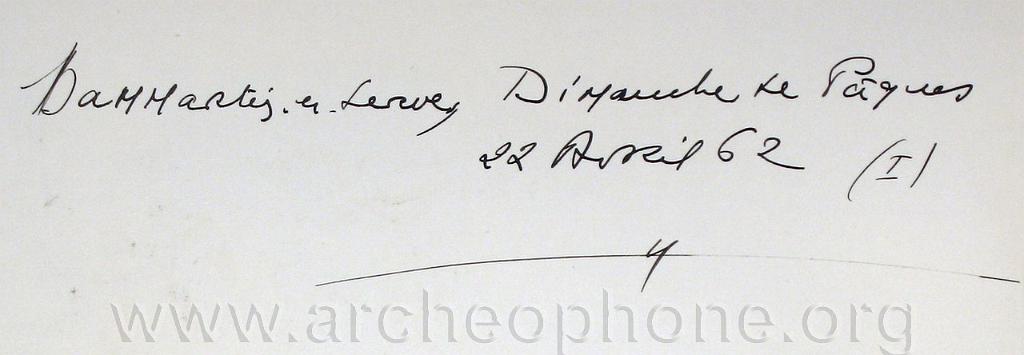 Dammartin-en-Serve, Dimanche de Pâques
22 Avril 62 (I)
www.archeophone.org